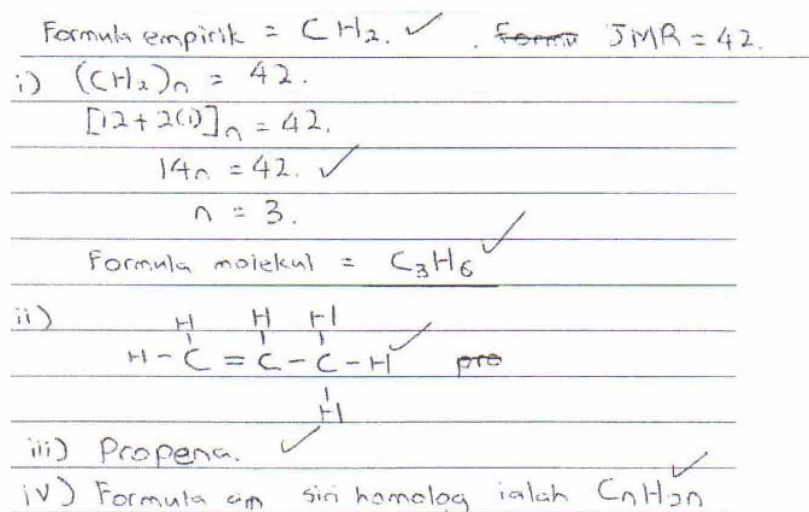 Formula empirik = CH₂. ✓ . Formu JMR = 42.
i) (CH₂)n = 42.
[12 + 2(1)]n = 42.
14n = 42. ✓
n = 3.
Formula molekul = C₃H₆ ✓
ii)
H H H
H - C = C - C - H ✓ pro
H
iii) Propena. ✓
iv) Formula am siri homolog ialah CnH2n ✓